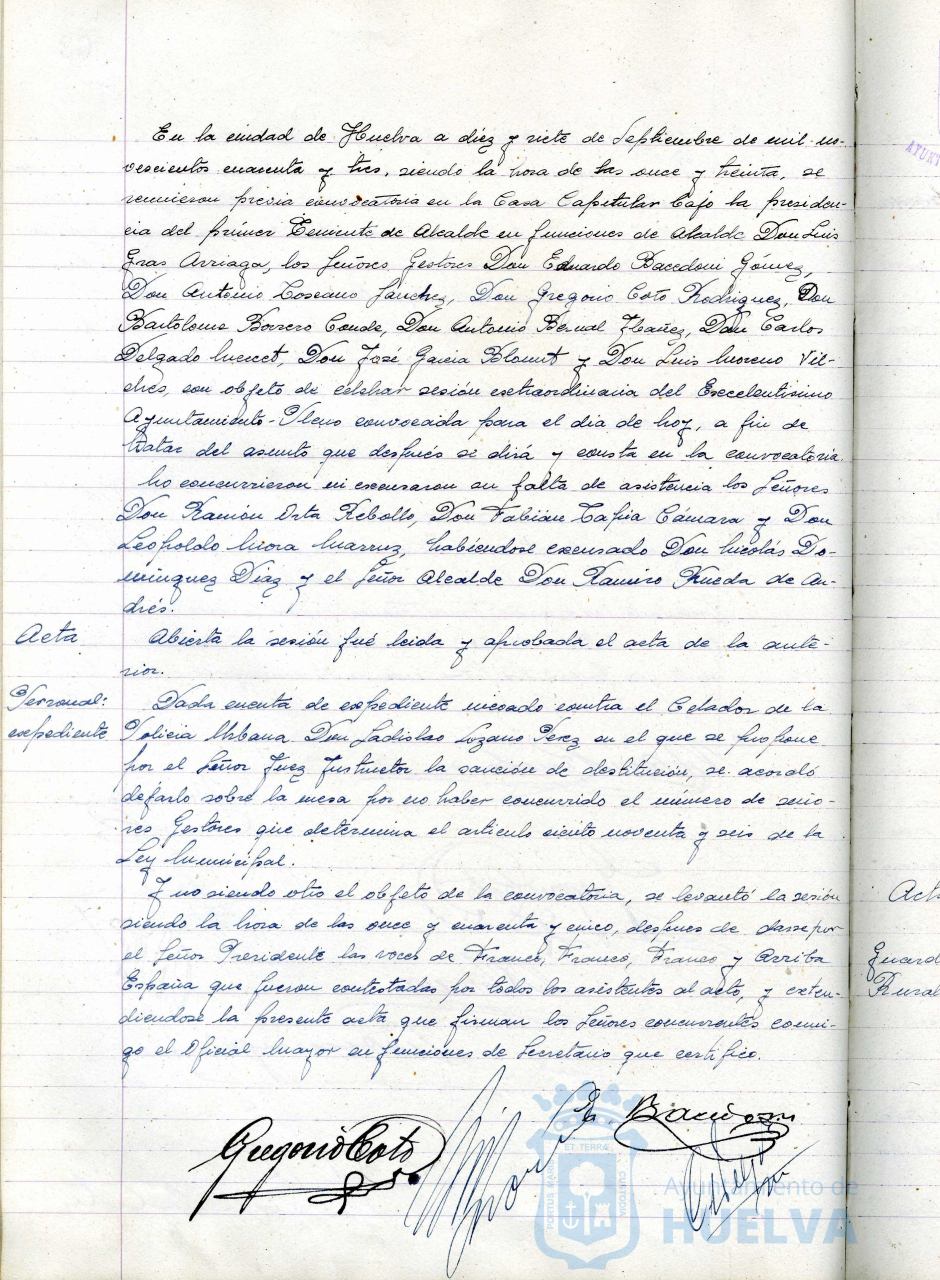 En la ciudad de Huelva a diez y siete de Septiembre de mil no-
vescientos cuarenta y tres, siendo la hora de las once y treinta, se
reunieron previa convocatoria en la Casa Capitular bajo la presiden-
cia del primer Teniente de Alcalde en funciones de Alcalde Don Luis
Gras Arriaga, los Señores Gestores Don Eduardo Bacedoni Gómez,
Don Antonio Toscano Sanchez, Don Gregorio Coto Rodriguez, Don
Bartolomé Borrero Conde, Don Antonio Bernal Ibañez, Don Carlos
Delgado, Don José Garcia Blount y Don Luis Moreno Vil-
ches, con objeto de celebrar sesión extraordinaria del Excelentisimo
Ayuntamiento-Pleno convocada para el dia de hoy, a fin de
tratar del asunto que después se dirá y consta en la convocatoria.
No concurrieron ni excusaron su falta de asistencia los Señores
Don Ramón Orta Rebollo, Don Fabián Tapia Cámara y Don
Leopoldo Mora, habiéndose excusado Don Nicolás Do-
minguez Diaz y el Señor Alcalde Don Ramiro Rueda de An-
drés.
Acta
Abierta la sesión fué leida y aprobada el acta de la ante-
rior.
Personal:
expediente
Dada cuenta de expediente incoado contra el Celador de la
Policia Urbana Don Ladislao Lozano Perez en el que se propone
por el Señor Juez Instructor la sanción de destitución, se acordó
dejarlo sobre la mesa por no haber concurrido el número de seño-
res Gestores que determina el articulo ciento noventa y seis de la
Ley Municipal.
Y no siendo otro el objeto de la convocatoria, se levantó la sesión
siendo la hora de las once y cuarenta y cinco, despues de darse por
el Señor Presidente las voces de Franco, Franco, Franco y Arriba
España que fueron contestadas por todos los asistentes al acto, y exten-
diendose la presente acta que firman los Señores concurrentes conmi-
go el Oficial Mayor en funciones de Secretario que certifico.
Gregorio Coto
E. Bacedoni
PORTUS MARIS ET TERRAE CUSTODIA
Ayuntamiento de
HUELVA
AYUNT
Acta
Guard
Rural